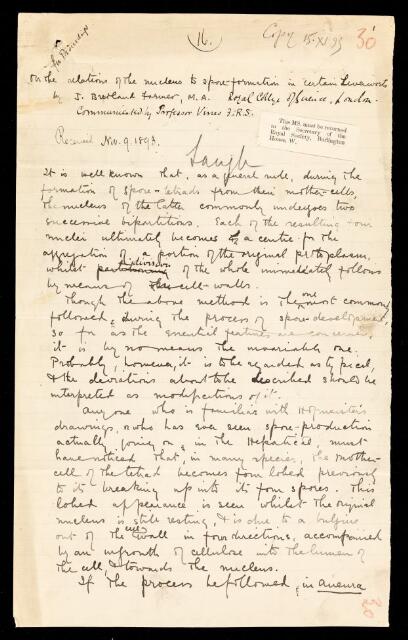 (16.
Copy 15.XI.93
30
In Proceedings
On the relations of the nucleus to spore-formation in certain Liverworts
by J. Bretland Farmer, M.A. Royal College of Science, London.
Communicated by Professor Vines F.R.S.
This MS. must be returned
to the Secretary of the
Royal Society, Burlington
House W.
Received Nov. 9. 1893.
It is well known that, as a general rule, during the
formation of spore-tetrads from their mother-cells,
the nucleus of the latter commonly undergoes two
successive bipartitions. Each of the resulting four
nuclei ultimately becomes a centre for the
aggregation of a portion of the original protoplasm,
whilst division of the whole immediately follows
by means of cell-walls.
Though the above method is the one most commonly
followed, during the process of spore-development,
so far as the essential features are concerned,
it is by no means the invariable one.
Probably, however, it is to be regarded as typical,
& the deviations about to be described should be
interpreted as modifications of it.
Any one who is familiar with Hofmeister's
drawings, or who has ever seen spore-production
actually going on, in the Hepaticæ, must
have noticed that, in many species, the mother-
cell of the tetrad becomes four lobed previously
to its breaking up into its four spores. This
lobed appearance is seen whilst the original
nucleus is still resting, & is due to a bulging
out of the cell wall in four directions, accompanied
by an ingrowth of cellulose into the lumen of
the cell, & towards the nucleus.
If the process be followed, in Aneura
30